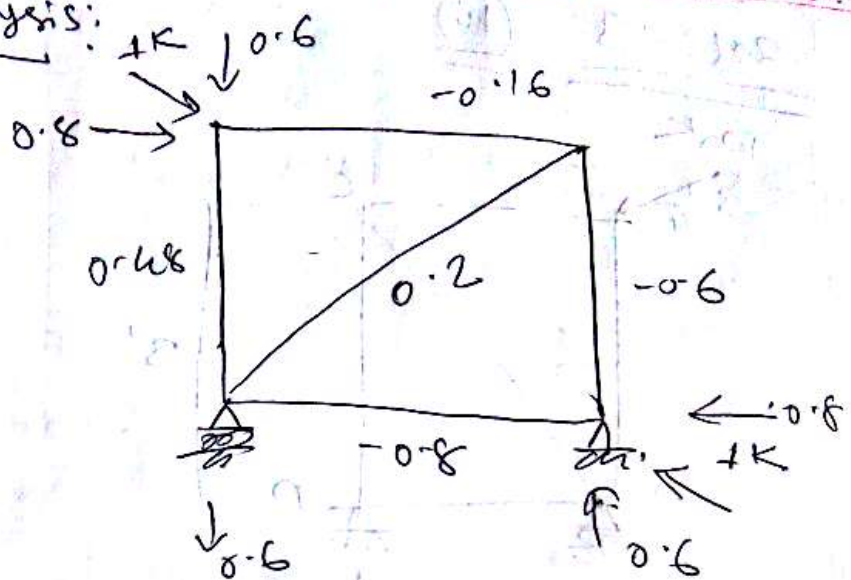 ysis:
1K ↓ 0.6
-0.16
0.8 →
0.48
0.2
-0.6
← 0.8
-0.8
1K
↓ 0.6
↑ 0.6